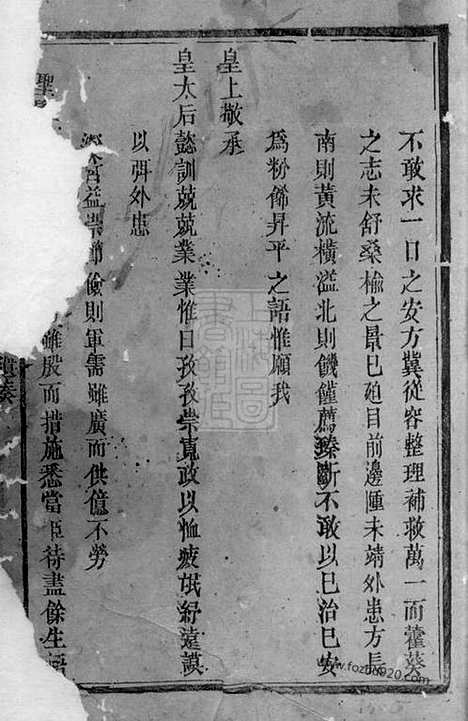 不敢求一日之安方冀從容整理補救萬一而藿葵
之志未舒桑榆之景已迫目前邊陲未靖外患方長
南則黃流橫溢北則饑饉薦臻斷不敢以已治已安
為粉飾昇平之語惟願我
皇上敬承
皇太后懿訓兢兢業業惟日孜孜崇寬政以恤疲氓紓遠謨
以弭外患
益崇節儉則軍需雖廣而供億不勞
雖殷而措施悉當臣待盡餘生
聖
上海圖書館藏
www.fozhu920.com